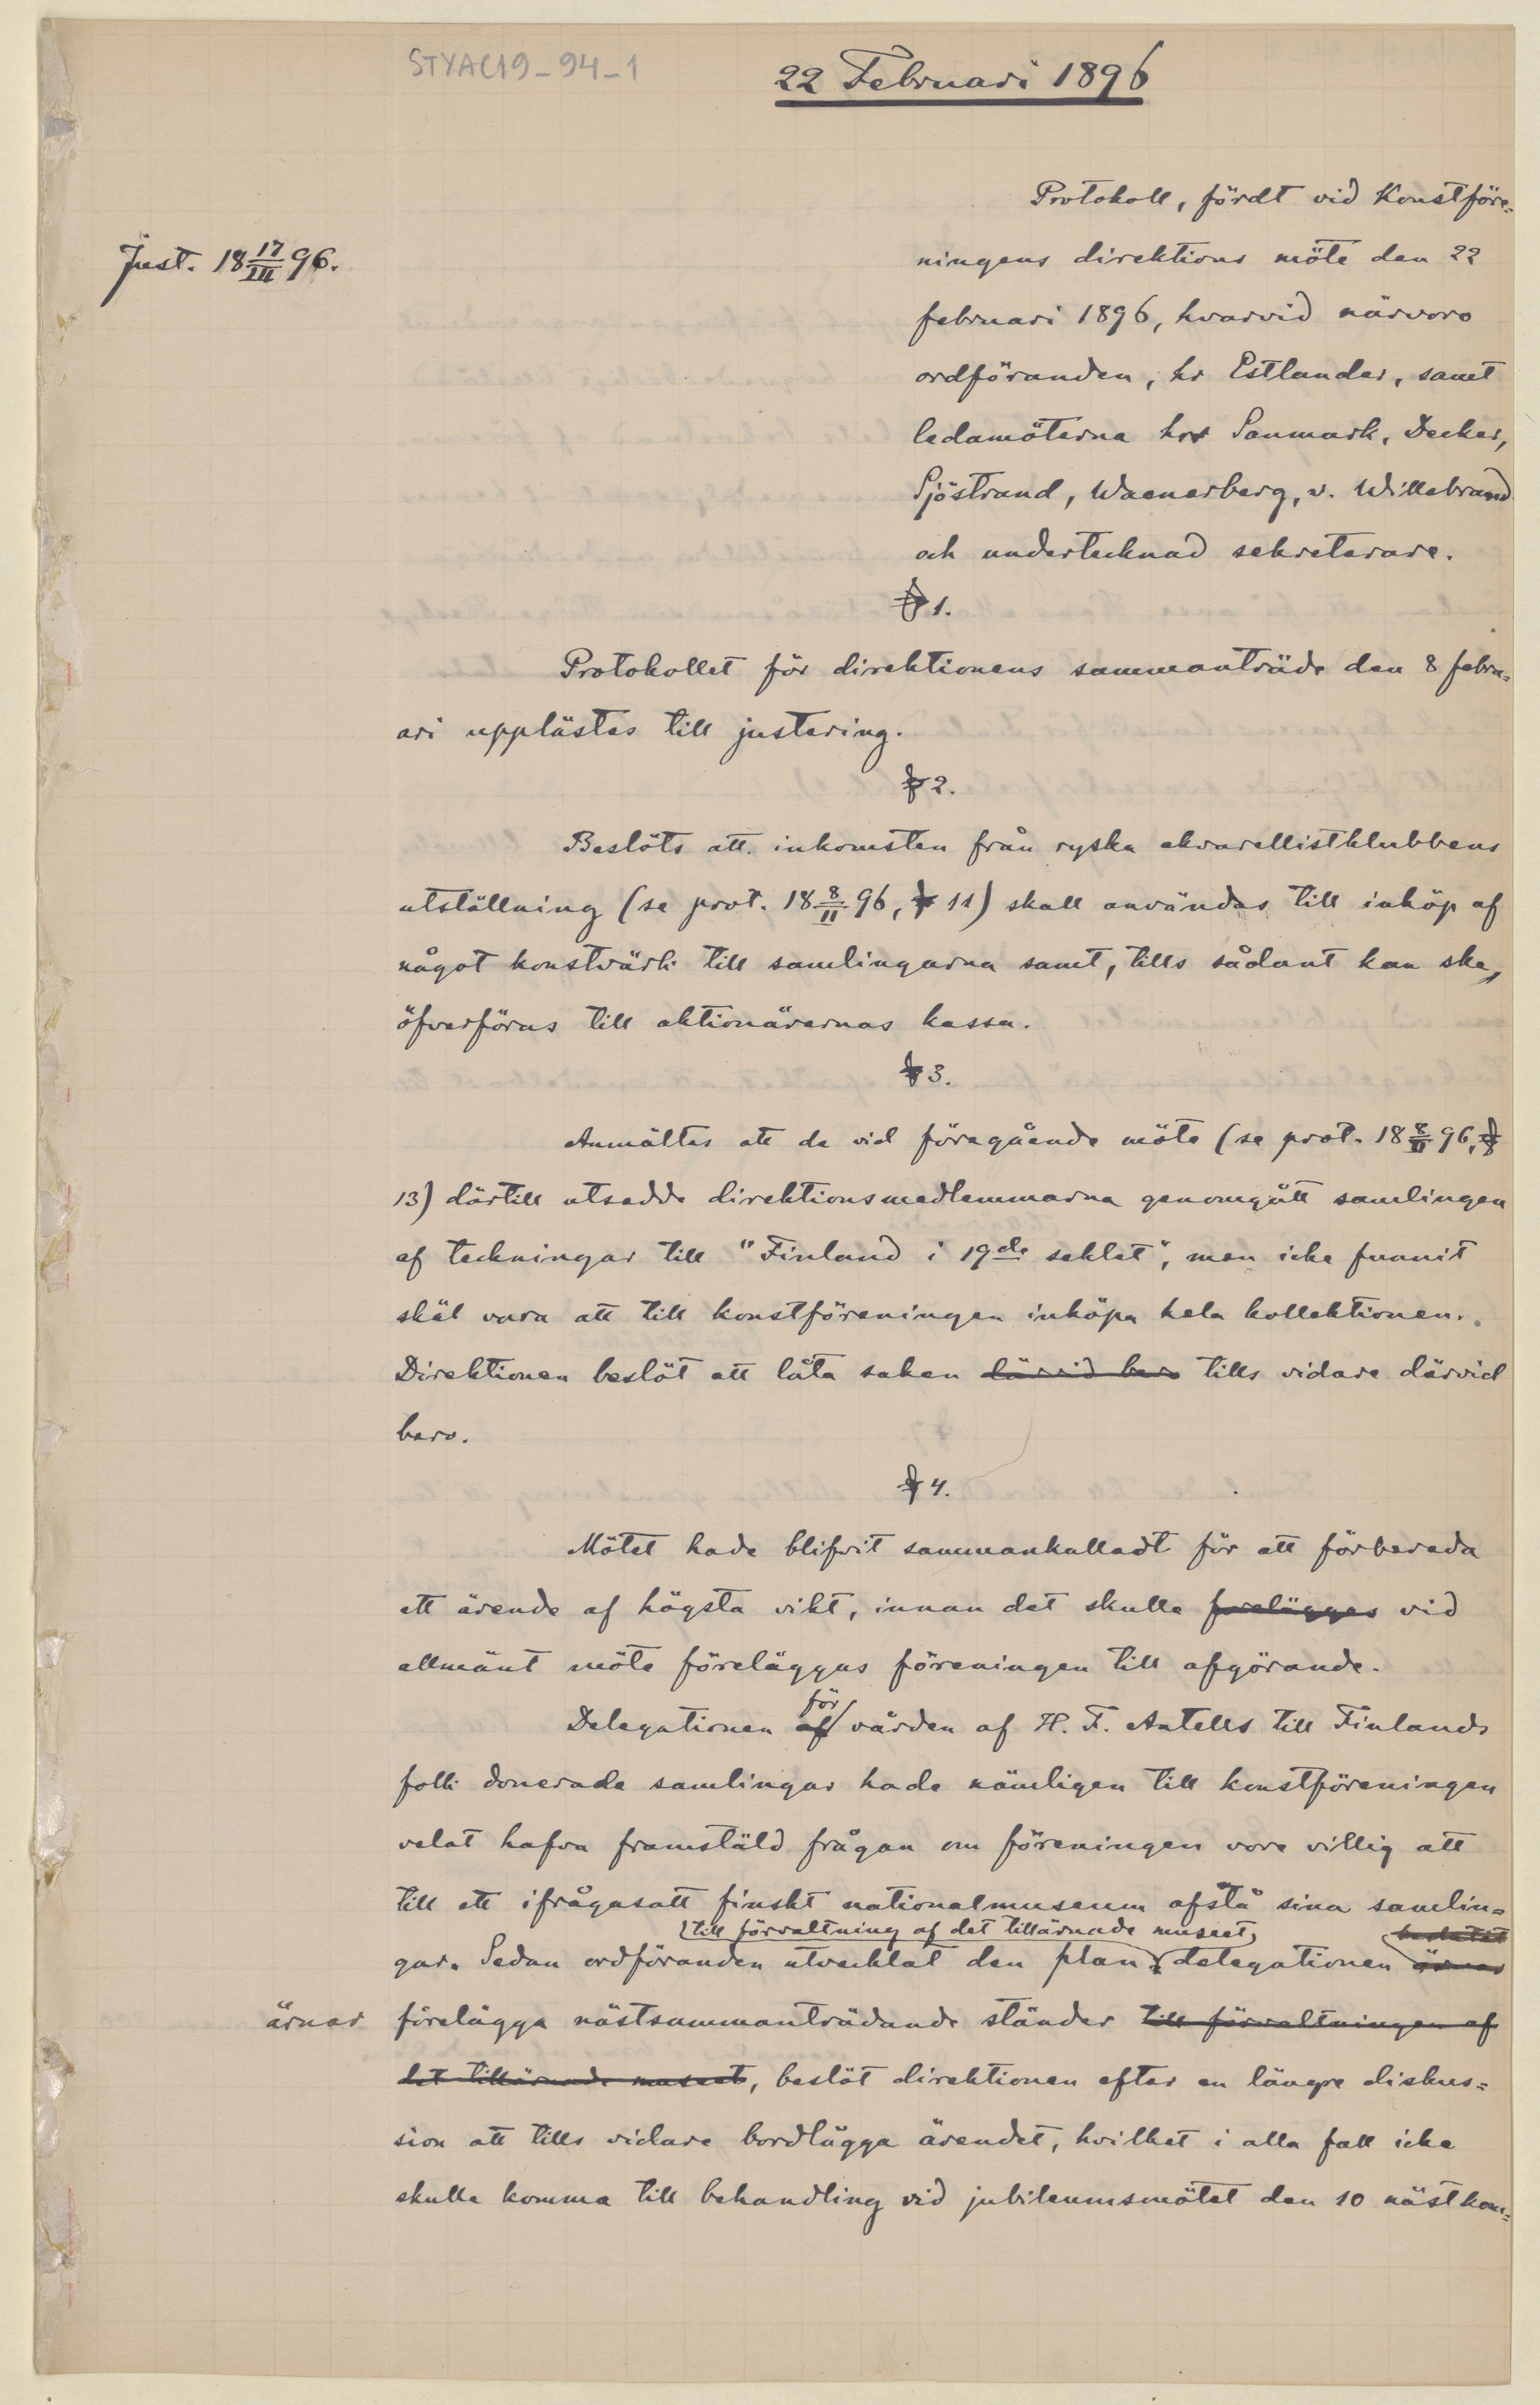 STYAC19-94-1
22 Februari 1896
Protokoll, fördt vid Konstföre=
Just. 18 17/III 96.
ningens direktions möte den 22
februari 1896, hvarvid närvoro
ordföranden, hr Estlander, samt
ledamöterna hrr Sanmark, Decker,
Sjöstrand, Waenerberg, v. Willebrand
och undertecknad sekreterare.
§ 1.
Protokollet för direktionens sammanträde den 8 febru=
ari upplästes till justering.
§ 2.
Beslöts att inkomsten från ryska akvarellistklubbens
utställning (se prot. 18 8/II 96, § 11) skall användas till inköp af
något konstvärk till samlingarna samt, tills sådant kan ske,
öfverföras till aktionärernas kassa.
§ 3.
Anmältes att de vid föregående möte (se prot. 18 8/II 96, §
13) därtill utsedde direktionsmedlemmarna genomgått samlingen
af teckningar till "Finland i 19de seklet", men icke funnit
skäl vara att till konstföreningen inköpa hela kollektionen.
Direktionen beslöt att låta saken därvid bero tills vidare därvid
bero.
§ 4.
Mötet hade blifvit sammankalladt för att förbereda
ett ärende af högsta vikt, innan det skulle föreläggas vid
allmänt möte föreläggas föreningen till afgörande.
för
Delegationen af vården af H. F. Antells till Finlands
folk donerade samlingar hade nämligen till konstföreningen
velat hafva framstäld frågan om föreningen vore villig att
till ett ifrågasatt finskt nationalmuseum afstå sina samlin=
till förvaltning af det tillärnade museet, beslutat
gar. Sedan ordföranden utvecklat den plan delegationen ärnar
ärnar förelägga nästsammanträdande ständer till förvaltningen af
det tillärnade museet, beslöt direktionen efter en längre diskus=
sion att tills vidare bordlägga ärendet, hvilket i alla fall icke
skulle komma till behandling vid jubileumsmötet den 10 nästkom=